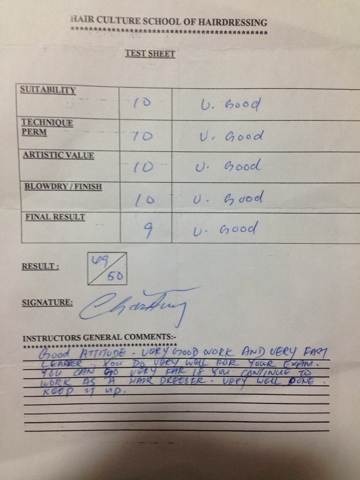 HAIR CULTURE SCHOOL OF HAIRDRESSING
TEST SHEET
SUITABILITY 10 V. Good
TECHNIQUE
PERM 10 V. Good
ARTISTIC VALUE 10 V. Good
BLOWDRY / FINISH 10 V. Good
FINAL RESULT 9 V. Good
RESULT : 49/50
SIGNATURE:
INSTRUCTORS GENERAL COMMENTS:-
Good ATTITUDE. VERY GOOD WORK AND VERY FAST
LEARER. YOU DO VERY WELL FOR YOUR EXAM.
YOU CAN GO VERY FAR IF YOU CONTINUE TO
WORK AS A HAIR DRESSER. VERY WELL DONE.
KEEP IT UP.